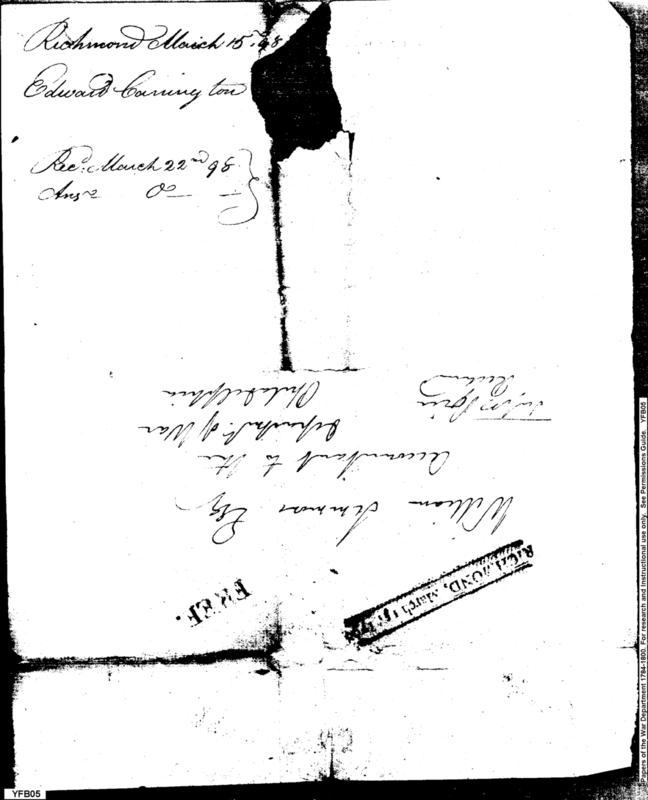 Richmond March 15th 98
Edward Carrington
Recd. March 22nd 98
Ansd Do
William Simmons Esq
Accountant to the
Departmt. of War
Philadelphia
FREE.
RICHMOND, March 15, 1798
Papers of the War Department 1784-1800. For research and instructional use only. See Permissions Guide. YFB05
YFB05